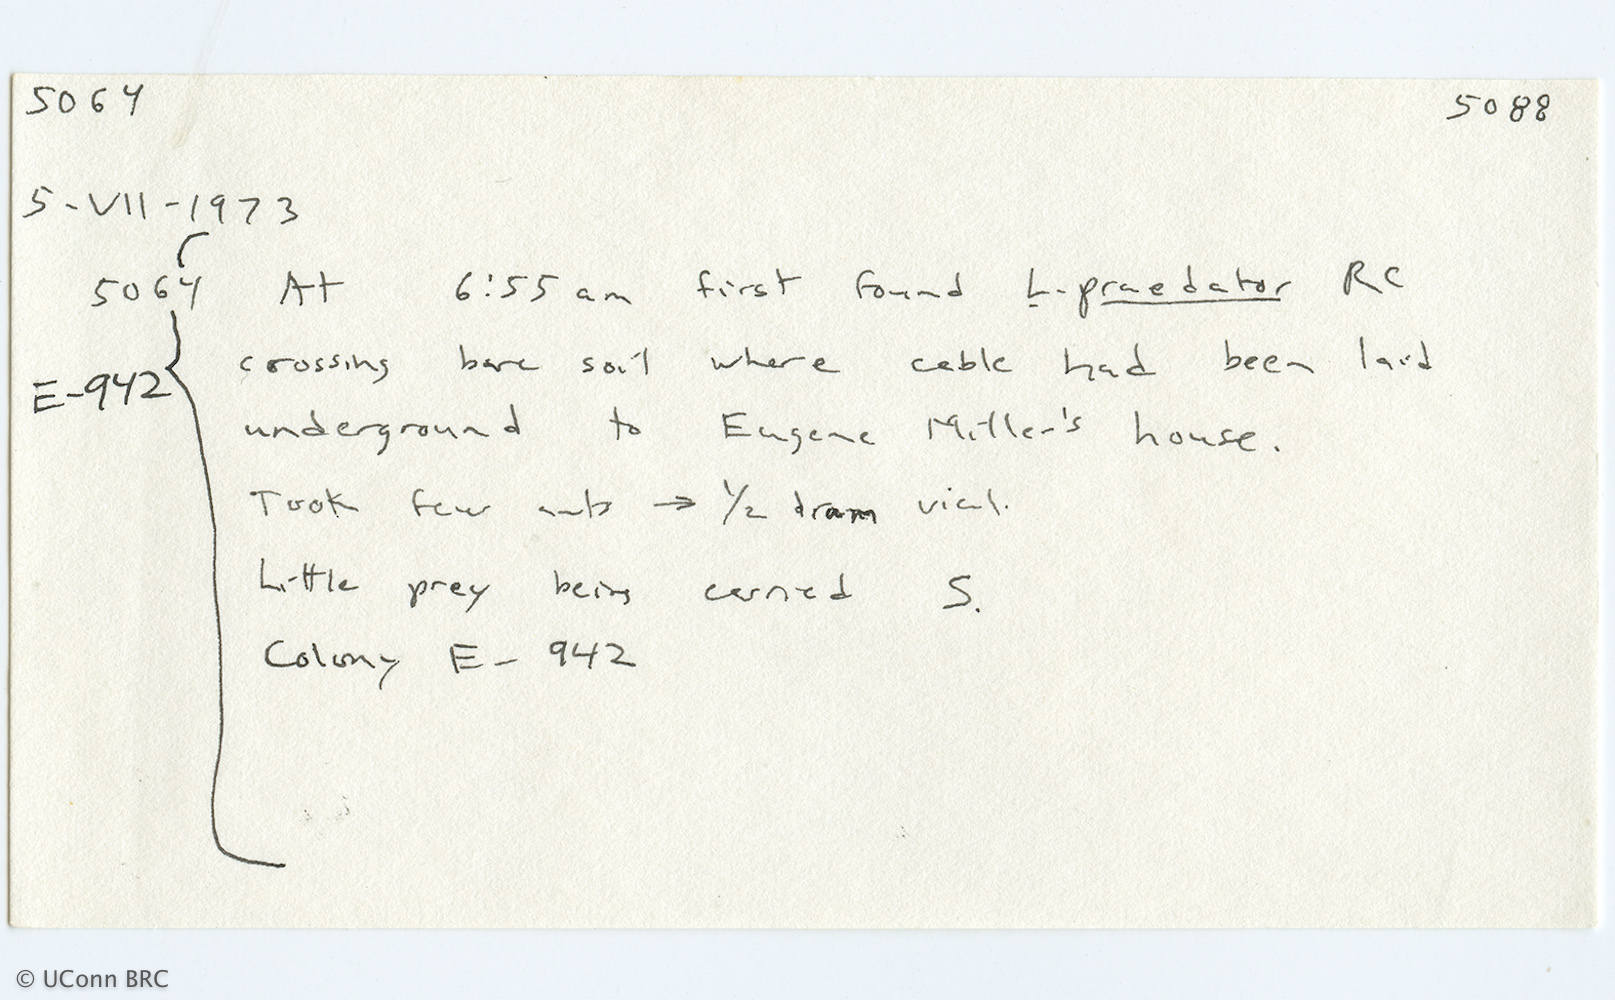 5064 5088
5-VII-1973
5064 At 6:55 am first found L. praedator RC
crossing bare soil where cable had been laid
E-942
underground to Eugene Miller's house.
Took few ants → 1/2 dram vial.
Little prey being carried S.
Colony E-942
© UConn BRC